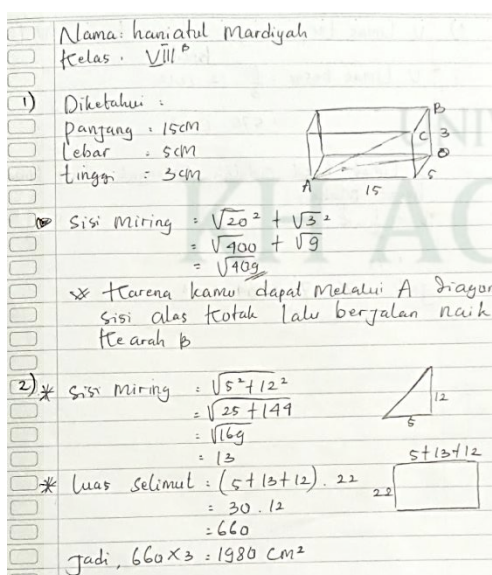 Nama: haniatul Mardiyah
Kelas. VIII B
1) Diketahui :
Panjang : 15cm
Lebar : 5cm
tinggi : 3cm
B
C 3
A
15
5
Sisi Miring = √20² + √3²
= √400 + √9
= √409
* Karena kamu dapat Melalui A diagon
sisi alas Kotak Lalu berjalan naik
Ke arah B
2) * Sisi Miring : √5²+12²
= √25 + 144
: √169
: 13
12
5
* Luas Selimut : (5+13+12) . 22
: 30 . 12
: 660
5+13+12
22
Jadi, 660 x 3 : 1980 cm²